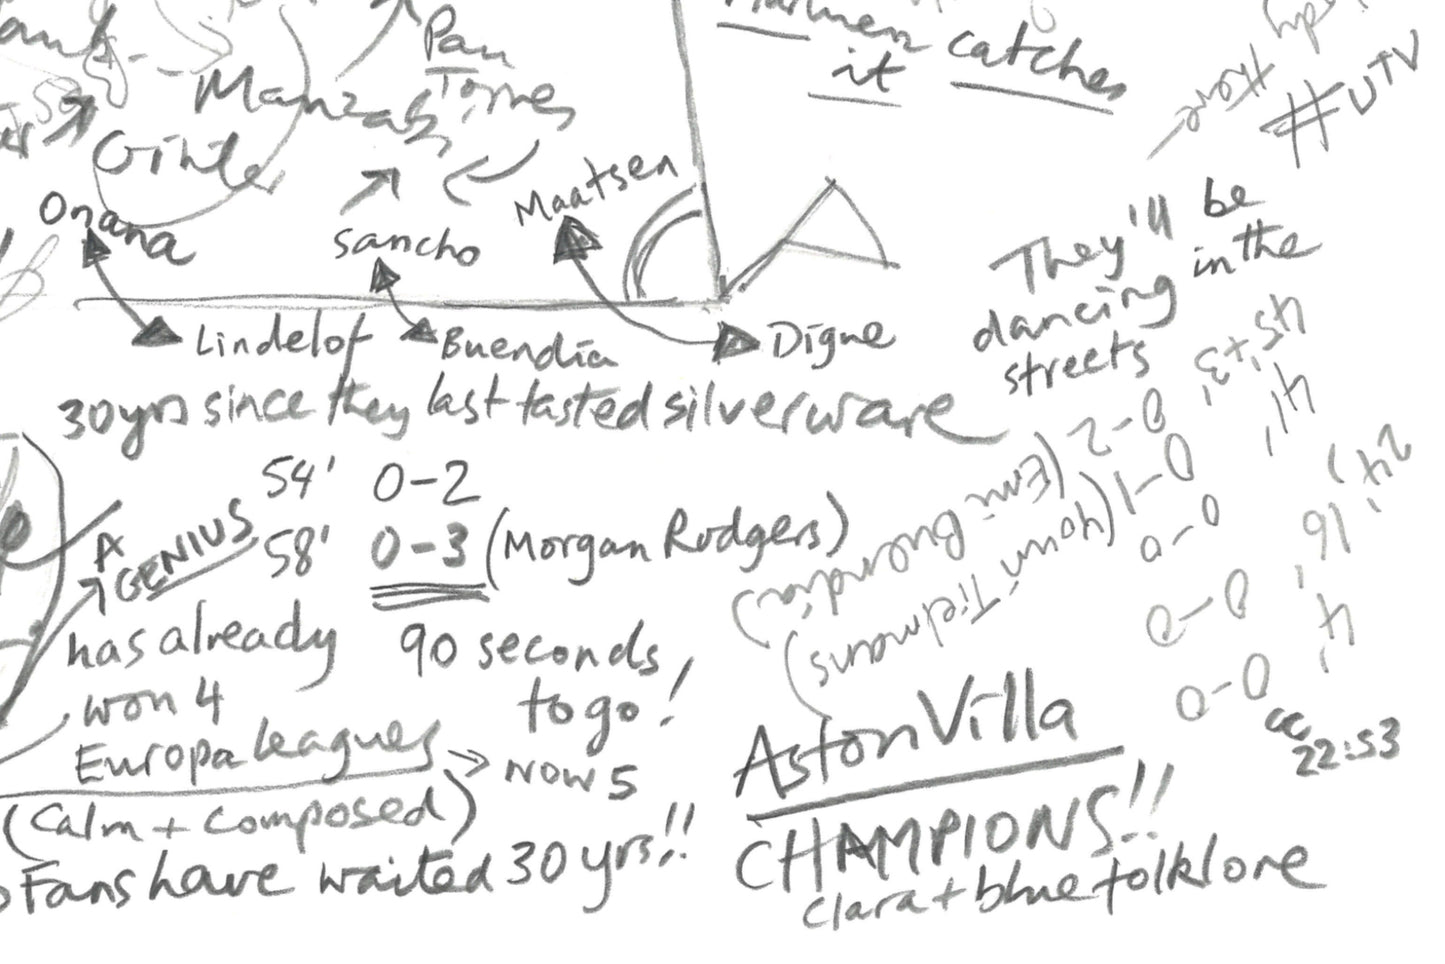 Pau
Torres
catches
it
#UTV
Manzab
Ginter
Onana
Sancho
Maatsen
They'll be
dancing in the
streets
Lindelof
Buendia
Digne
30yrs since they last tasted silverware
45'+3' 0-2 (Emi Buendia)
41' 0-1 (Youri Tielmans)
24' 0-0
16' 0-0
4' 0-0
54' 0-2
58' 0-3 (Morgan Rodgers)
A
GENIUS
has already
won 4
Europa leagues
→ NOW 5
(Calm + composed)
90 seconds
to go!
Fans have waited 30 yrs!!
Aston Villa
CHAMPIONS!!
clara + blue folklore
22:53